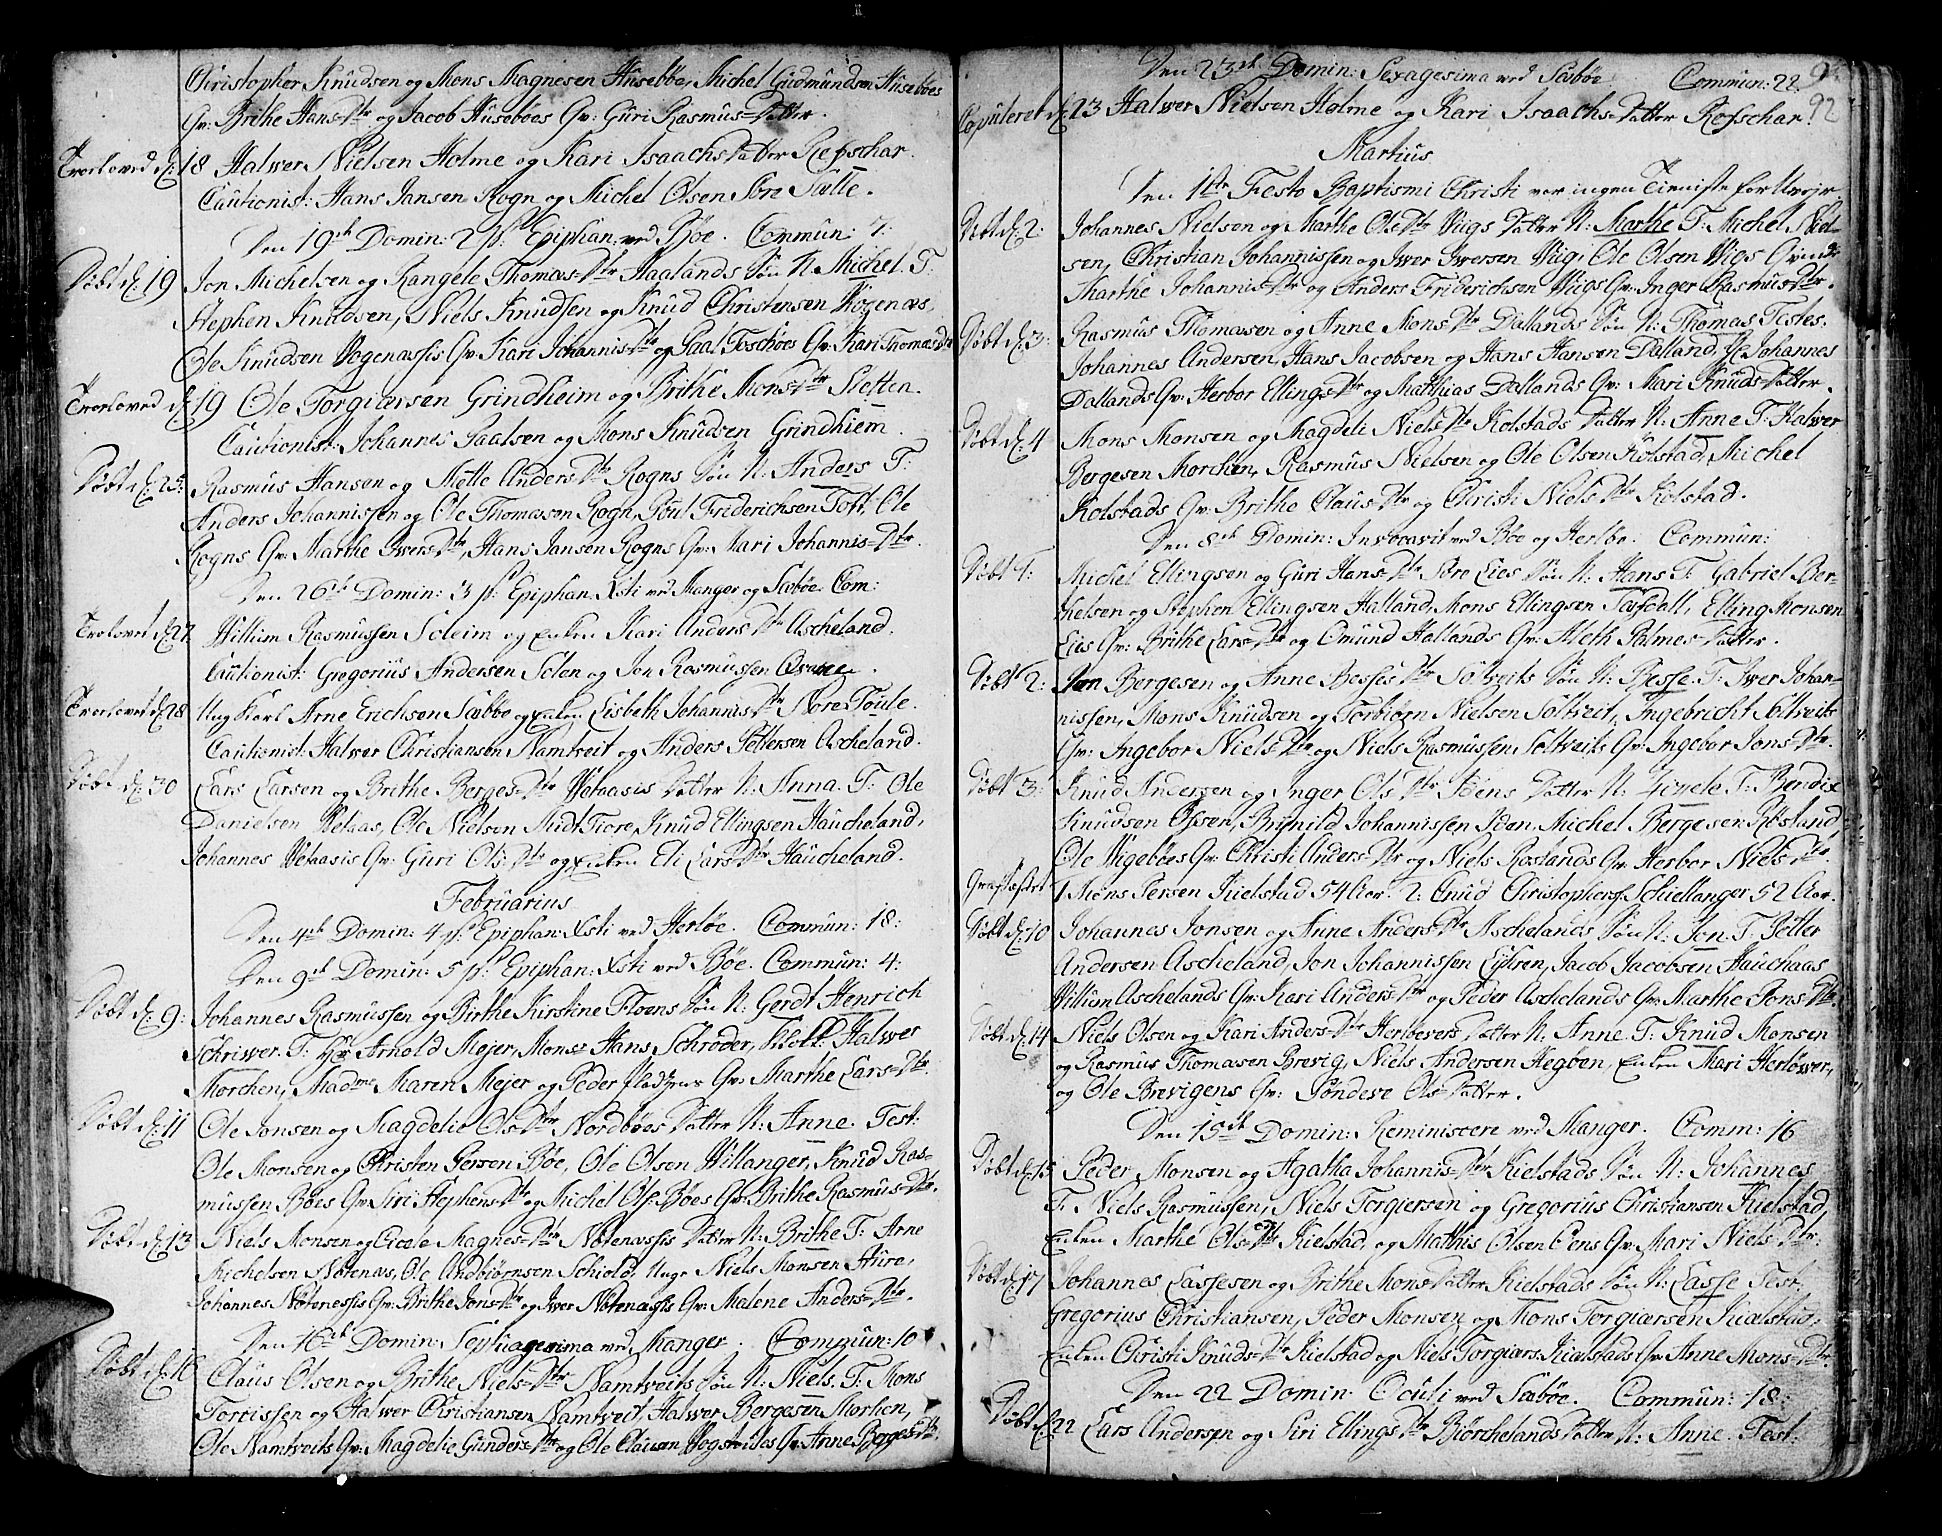 Christopher Knudsen og Mons Magnesen Husebøe, Michel Gudmundsen Husebøes
Qv: Brithe Hans-Dtr og Jacob Husebøes Qv: Guri Rasmus-Datter.
Trorloved d: 18 Halwer Nielsen Holme og Kari Isaachs Datter Refschar.
Cautionist: Hans Jansen Rogn og Michel Olsen Søre Sætte.
Den 19de Domin: 2 p: Epiphan: ved Bøe. Commun: 7:
Døbt d: 19 Jon Michelsen og Rangele Thomas-Dtr Haalands Søn N: Michel. T:
Stephen Knudsen, Niels Knudsen og Knud Christensen Wogenæs,
Ole Knudsen Wogenæssis Qv: Kari Johannis-Dtr og Paal Tosckøes Qv: Kari Thomas Dtr
Trorloved d: 19 Ole Torgiersen Grindheim og Brithe Mons-Dtr Sletten.
Cautionist: Johannes Paalsen og Mons Knudsen Grindhiem.
Døbt d: 25: Rasmus Hansen og Mette Anders-Dtr Rogns Søn N: Anders T:
Anders Johannissen og Ole Thomassen Rogn, Poul Friderichsen Toft, Ole
Rogns Qv: Marthe Iwers-Dtr, Hans Jansen Rogns Qv: Mari Johannis-Dtr
Den 26de Domin: 3 p: Epiphan: Xsti ved Manger og Sæbøe. Com:
Trolovet d: 27 Willum Rasmussen Soleim og Enken Kari Anders Dtr Ascheland.
Cautionist: Gregorius Andersen Solen og Jon Rasmussen
Trorlovet d: 28 Ung Karl Arne Erichsen Sæbbø og Enken Lisbeth Johannis Dtr Nore Toule.
Cautionist: Halwer Christiansen Namtveit og Anders Pettersen Ascheland.
Døbt d: 30 Lars Larsen og Brithe Berges-Dtr Wetaasis Datter N: Anna. T: Ole
Danielsen Wetaas, Ole Nielsen Midt Tiore, Knud Ellingsen Haucheland,
Johannes Wetaasis Qv: Guri Ols-Dtr og Enken Eli Lars Dtr Haucheland.
Februarius
Den 4de Domin: 4 p: Epiphan: Xsti ved Herløe. Commun: 18:
Den 9de Domin: 5 p: Epiphan: Xsti ved Bøe. Commun: 4:
Døbt d: 9: Johannes Rasmussen og Birthe Kirstine Floens Søn N: Gerdt Henrich
Schriwer. T: Hr Arnold Mejer, Mons: Hans Schrøder, Halwer
Morchen, Madme Maren Mejer og Peder Qv: Marthe Lars-Dtr.
Døbt d: 11 Ole Jonsen og Magdelie Ols Dtr Nordbøes Datter N: Anne. Test:
Ole Monsen og Christen Jersen Bøe, Ole Olsen Willanger, Knud Ras-
mussen Bøes Qv: Siri Stephens Dtr og Michel Ols: Bøes Qv: Brithe Rasmus-Dtr.
Døbt d: 13 Niels Monsen og Cicele Magnes-Dtr Notenæssis Datter N: Brithe T: Arne
Michelsen Notenæs, Ole Andbiørnsen Schiold, Unge Niels Monsen Hure,
Johannes Nøtenessis Qv: Brithe Jons-Dtr og Iwer Nøtenæssis Qv: Malene Anders-Dtr.
Den 16de Domin: Septuagesima ved Manger. Commun: 10
Døbt d: 16 Claus Olsen og Brithe Niels-Dtr Namtveits Søn N: Niels. T: Mons
Torrissen og Halwer Christiansen Namtveit, Halwer Bergesen Morken,
Ole Namtveits Qv: Magdelie Gunders-Dtr og Ole Clausen Wogstøles Qv: Anne Berges-Dtr.
Den 23de Domin: Sexagesima ved Sæbøe. Commun: 22.
92
Copuleret d: 23 Halwer Nielsen Holme og Kari Isaachs-Datter Refschar.
Martius
Den 1te Festo Baptismi Christi var ingen Tieniste for Uvejr
Døbt d: 2: Johannes Nielsen og Marthe Ols Dtr Wiigs Datter N: Marthe T: Michel Niel-
sen, Christian Johannissen og Iwer Iwersen Wiig, Ole Olsen Wigs Qvinde
Marthe Johannis-Dtr og Anders Friderichsen Wiigs Qv: Inger Rasmus Dtr.
Døbt d: 3: Rasmus Thomassen og Anne Mons-Dtr Dallands Søn N: Thomas Testes.
Johannes Andersen, Hans Jacobsen og Hans Hansen Dalland, Johannes
Dallands Qv: Herbor Ellings Dtr og Matthias Dallands Qv: Mari Knuds-Datter.
Døbt d: 4 Mons Monsen og Magdeli Niels Dtr Kolstads Datter N: Anne T: Halwer
Bergesen Morchen, Rasmus Nielsen og Ole Olsen Kolstad, Michel
Kolstads Qv: Brithe Claus-Dtr og Christi Niels Dtr Kolstad.
Den 8de Domin: Invocavit ved Bøe og Herløe. Commun:
Døbt 1: Michel Ellingsen og Guri Hans-Dtr Søre Eies Søn N: Hans T: Gabriel Ber-
thelsen og Stephen Ellingsen Halland, Mons Ellingsen Elling Monsen
Eies Qv: Brithe Lars-Dtr og Omund Hallands Qv: Aleth Salmes-Datter.
Døbt 2: Jan Bergesen og Anne Besses Dtr Soltveits Søn N: Besse. T: Iwer Johan-
nissen, Mons Knudsen og Torbiørn Nielsen Søltveit, Ingebricht Søltveits
Qv: Ingebor Niels Dtr og Niels Rasmussen Søltveits Qv: Ingebor Jons-Dtr.
Døbt 3: Knud Andersen og Inger Ols Dtr Datter N: Zizele T: Bendix
Knudsen Ossen, Brynild Johannissen Iden, Michel Bergesen Røsland,
Ole Wigebøes Qv: Christi Anders-Dtr og Niels Roslands Qv: Herbor Niels-Dtr.
Grafæstet 1 Mons Persen Kielstad 54 Aar. 2: Knud Christophers: Schiellanger 52 Aar.
Døbt d: 10 Johannes Jonsen og Anne Anders Dtr Aschelands Søn N: Jon T: Petter
Andersen Ascheland, Jon Johannissen Eykren, Jacob Jacobsen Hauchaas
Willum Aschelands Qv: Kari Anders-Dtr og Peder Aschelands Qv: Marthe Pons-Dtr.
Døbt d: 14 Niels Olsen og Kari Anders-Dtr Herløevers Datter N: Anne. T: Knud Monsen
og Rasmus Thomassen Brevig, Niels Andersen Hegben, Enken Mari Herløwer,
og Ole Brevigens Qv: Søndeve Ols-Datter.
Den 15de Domin: Reminiscere ved Manger. Comm: 16
Døbt d: 15 Peder Monsen og Agatha Johannis-Dtr Kielstads Søn N: Johannes
T: Niels Rasmussen, Niels Torgiersen og Gregorius Christiansen Kielstad,
Enken Marthe Ols Dtr Kielstad, og Mathis Olsen Eens Qv: Mari Niels-Dtr.
Døbt d: 17 Johannes Lassesen og Brithe Mons-Datter Kielstads Søn N: Lasse Test:
Gregorius Christiansen, Peder Monsen og Mons Torgiærsen Kielstad,
Enken Christi Knuds-Dtr Kielstad og Niels Torgiers: Kielstads Qv: Anne Mons-Dtr.
Den 22 Domin: Oculi ved Sæbøe. Commun: 18:
Døbt d: 22 Lars Andersen og Siri Ellings Dtr Biørchelands Datter N: Anne. Test: